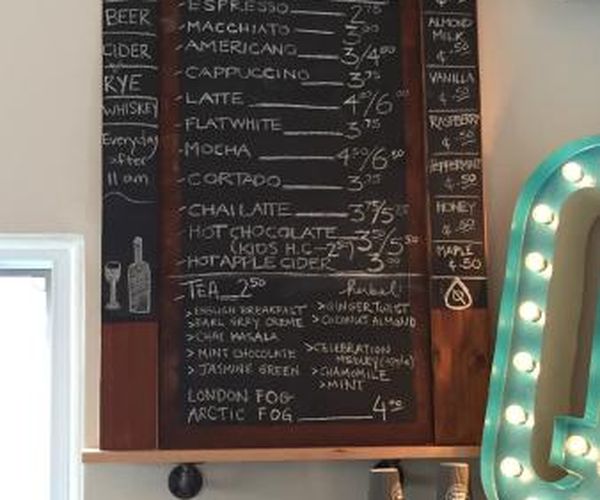 BEER
CIDER
RYE
WHISKEY
Everyday
after
11 am
ESPRESSO 2.75
MACCHIATO 3.00
AMERICANO 3/4.00
CAPPUCCINO 3.75
LATTE 4.00/6.00
FLATWHITE 3.75
MOCHA 4.50/6.50
CORTADO 3.25
CHAI LATTE 3.75/5.25
HOT CHOCOLATE 3.50/5.50
(KIDS H.C - 2.50)
HOT APPLE CIDER 3.00
TEA 2.50
herbal!
> ENGLISH BREAKFAST
> EARL GREY CREME
> CHAI MASALA
> MINT CHOCOLATE
> JASMINE GREEN
> GINGER TWIST
> COCONUT ALMOND
> CELEBRATION
MEDLEY
> CHAMOMILE
> MINT
LONDON FOG
ARCTIC FOG 4.00
ALMOND
MILK
.50
VANILLA
¢.50
RASPBERRY
¢.50
PEPPERMINT
¢.50
HONEY
MAPLE
¢.50